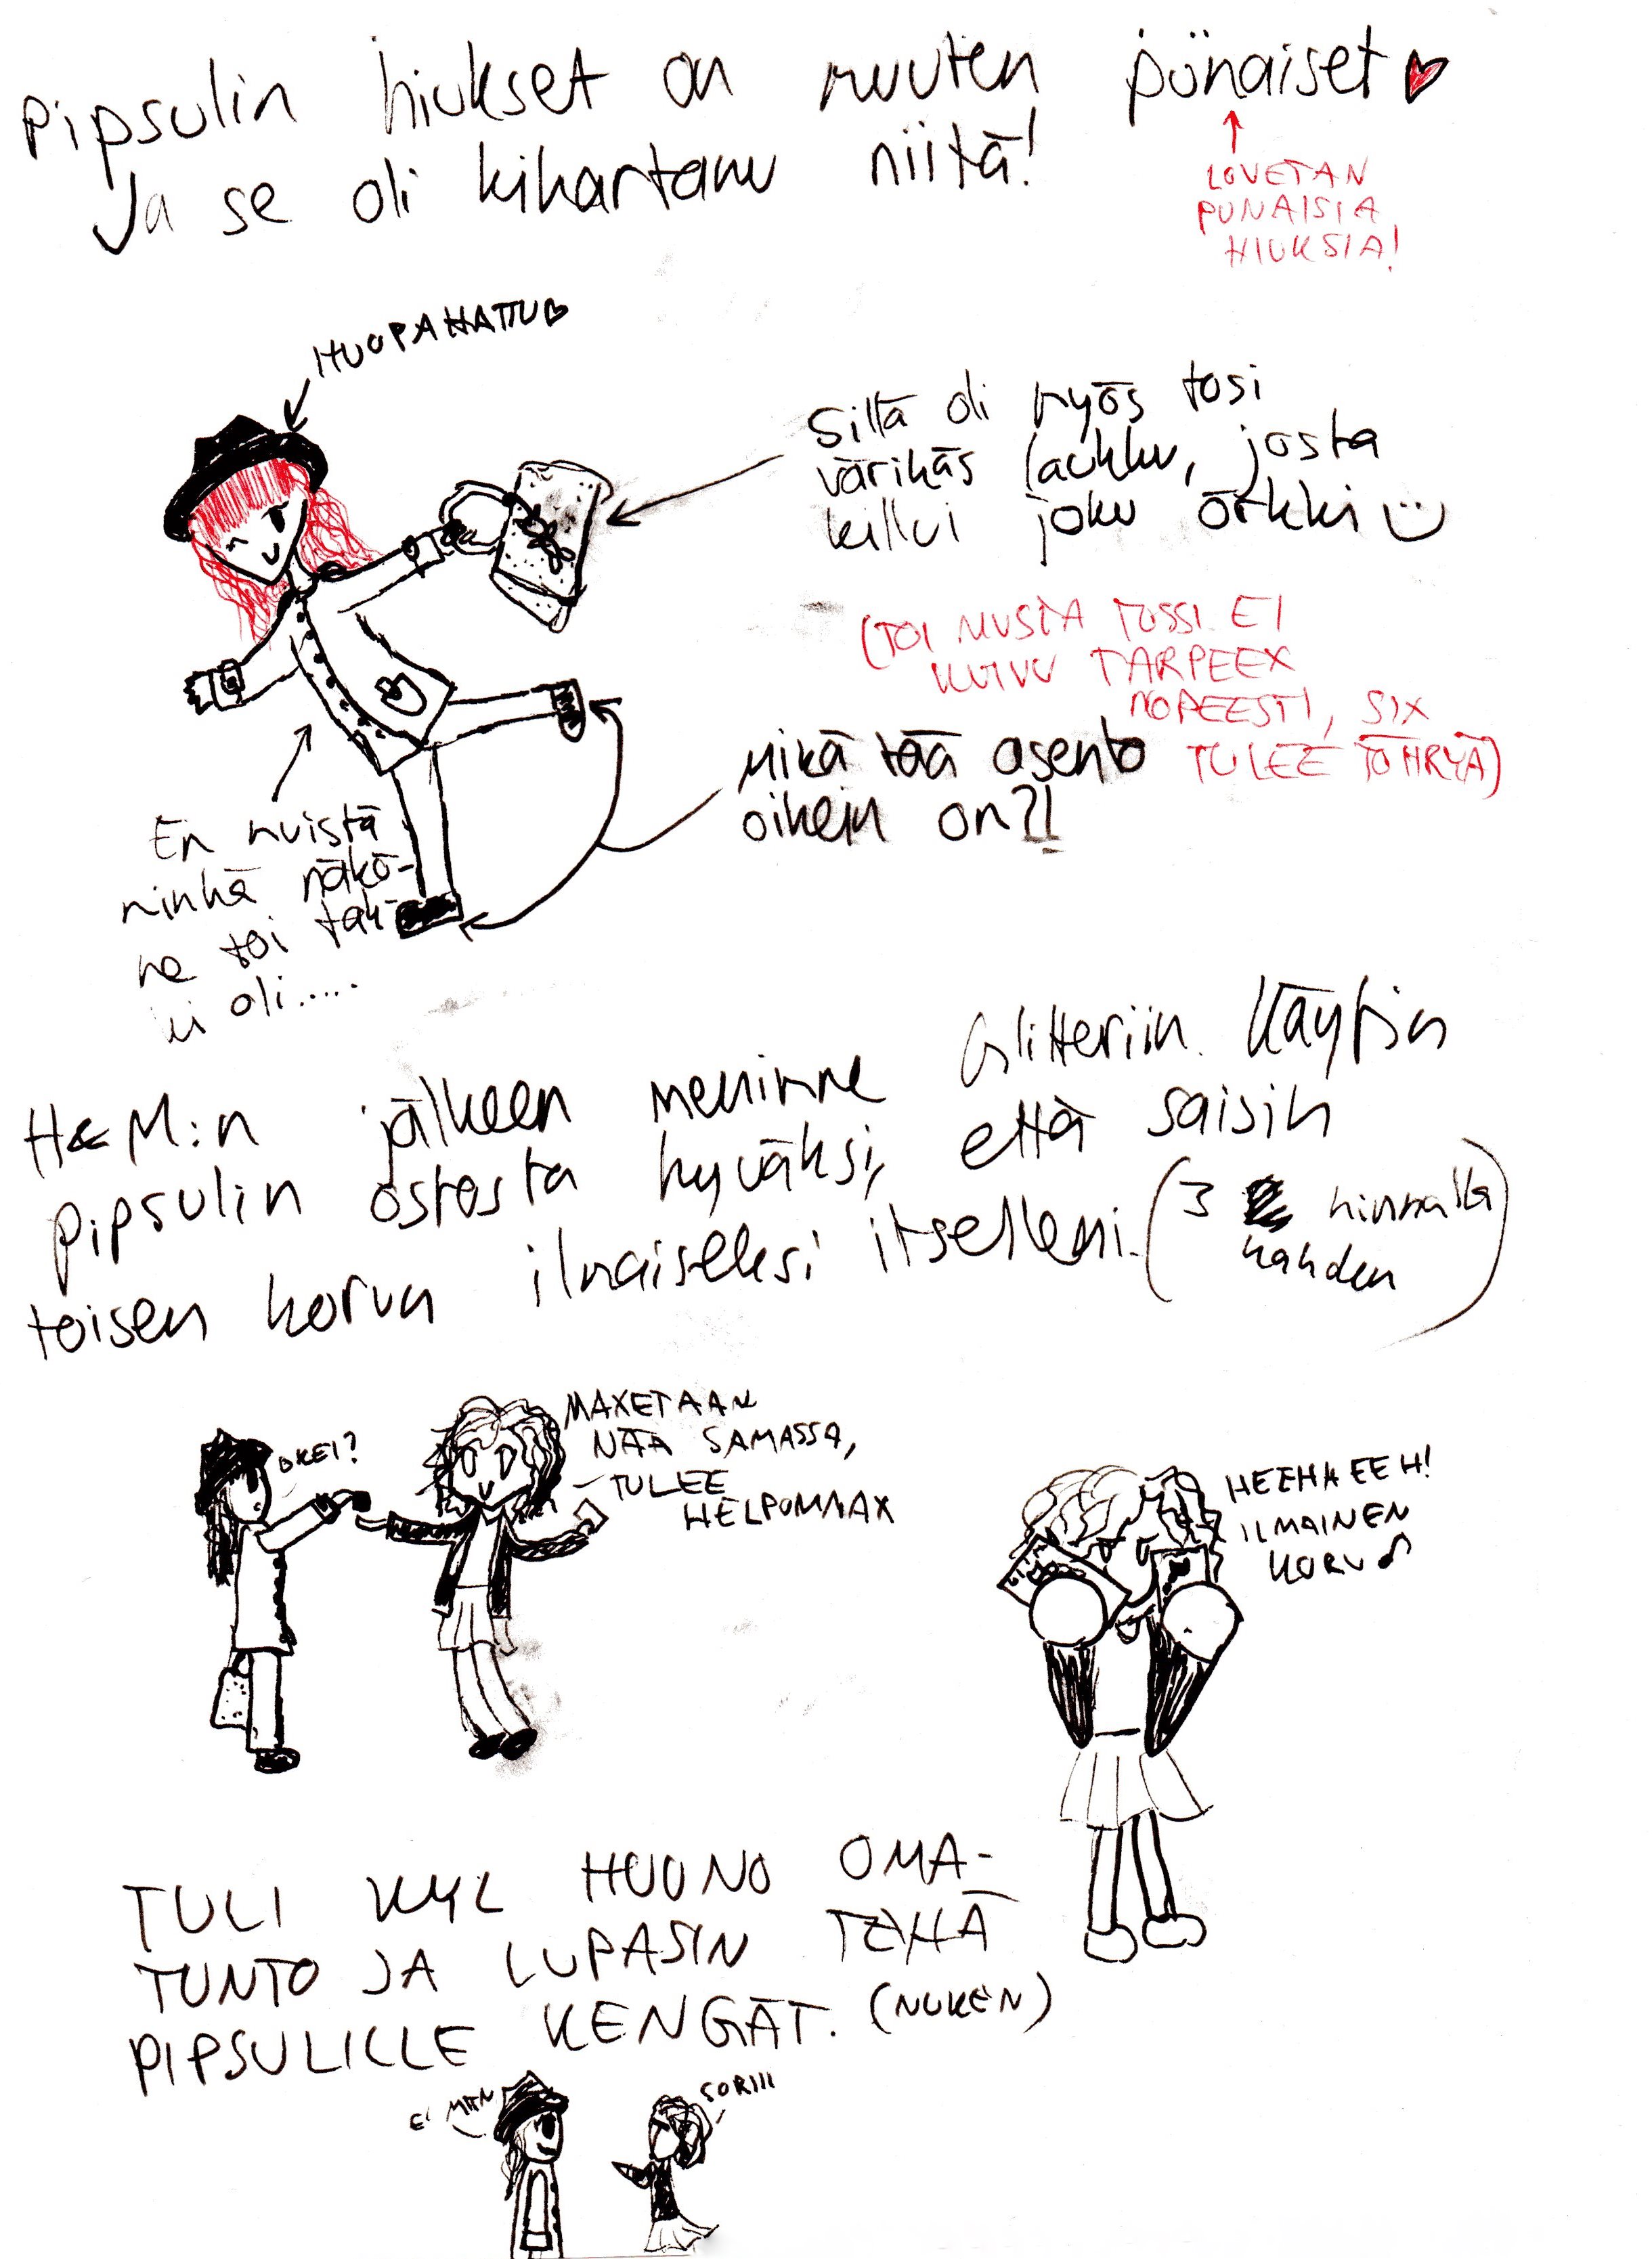 Pipsulin hiukset on muuten pünaiset
Ja se oli kihartanu niitä!
LOVETAN
PUNAISIA
HIUKSIA!
HUOPAHATTU
Sillä oli myös tosi
värikäs laukku, josta
killui joku ötkki
(TOI MUSTA TUSSI EI
KUIVU TARPEEX
NOPEESTI, SIX
TULEE TÖHRYÄ)
Mikä tää asento
oikein on?!
En muistä
minkä näkö-
ne toi tak-
ki oli.....
H&M:n jälkeen menimme Glitteriin. Käytin
Pipsulin ostosta hyväksi, että saisin
toisen korun ilmaiseksi itselleni. (3 hinnalla
kahden)
OKEI?
MAXETAAN
NÄÄ SAMASSA,
TULEE
HELPOMMAX
HEEHAEEH!
ILMAINEN
KORU♪
TULI KYL HUONO OMA-
TUNTO JA LUPASIN TEHÄ
PIPSULILLE KENGÄT. (NUKEN)
EI MITN
SORIII